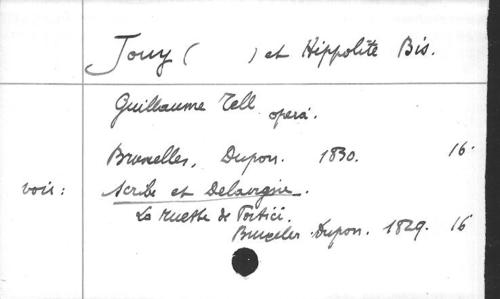 Jouy ( ) et Hippolite Bis.
Guillaume Tell opera.
Bruxelles, Dupon. 1830. 16°
voir: Scribe et Delavigne.
La Muette de Portici.
Bruxelles. Dupon. 1829. 16°